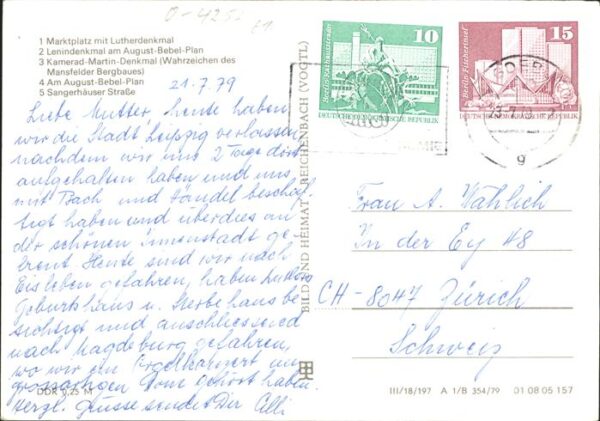 0-4252
61
1 Marktplatz mit Lutherdenkmal
2 Lenindenkmal am August-Bebel-Plan
3 Kamerad-Martin-Denkmal (Wahrzeichen des
Mansfelder Bergbaues)
4 Am August-Bebel-Plan
5 Sangerhäuser Straße
21.7.79
Liebe Mutter, heute haben
wir die Stadt Leipzig verlassen
nachdem wir uns 2 Tage dort
aufgehalten haben und uns
mit Bach und Händel beschäf-
tigt haben und überdies an
der schönen Innenstadt ge-
freut. Heute sind wir nach
Eisleben gefahren, haben Luthers
Geburtshaus u. Sterbehaus be-
sichtigt und anschliessend
nach Magdeburg gefahren,
wo wir ein Orgelkonzert im
grossartigen Dome gehört haben
Herzl. Grüsse sendet Dir Elli
DDR 0,25 M
BILD UND HEIMAT REICHENBACH (VOGTL)
10
Berlin, Rathausstraße
DEUTSCHE DEMOKRATISCHE REPUBLIK
15
Berlin, Fischerinsel
DEUTSCHE DEMOKRATISCHE REPUBLIK
g
Frau A. Wahlich
In der Ey 48
CH-8047 Zürich
Schweiz
III/18/197 A 1/B 354/79 01 08 05 157